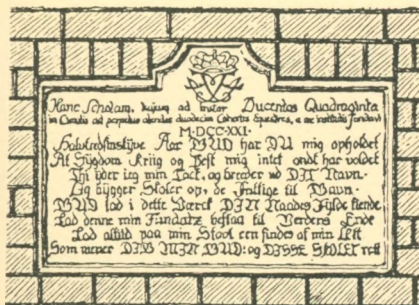 Hanc Scholam, hujus ad instar Ducentas Quadraginta
in Circulis ad perpetuo alendas duodecim Cohortes Equestres, e re instituti fundavi
M·DCC·XXI·
Halvtredsindstjve Aar GUD har DU mig opholdet
At Sygdom Kriig og Pest mig intet ondt har voldet
Thi yder jeg min Tack, og breder ud DIT Navn
Og bÿgger Skoler op, de Fattige til Gavn
GUD lad i dette Værck DIN Naades Fylde kiende
Lad denne min Fundatz bestaa til Verdens Ende
Lad altid paa min Stool een findes af min Æt
Som mener DIG MIN GUD: og DISSE SKOLER rett